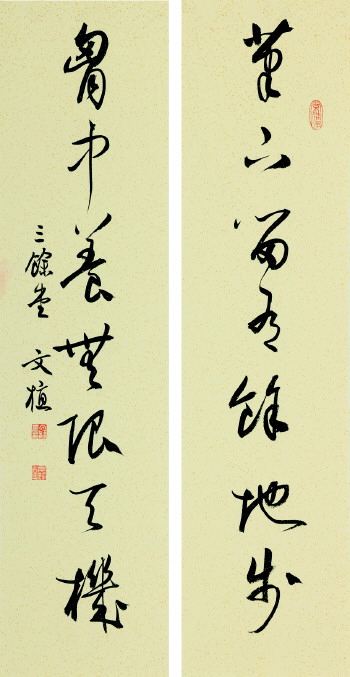 筆下留有餘地步
胷中養無限天機
三餘堂 文植